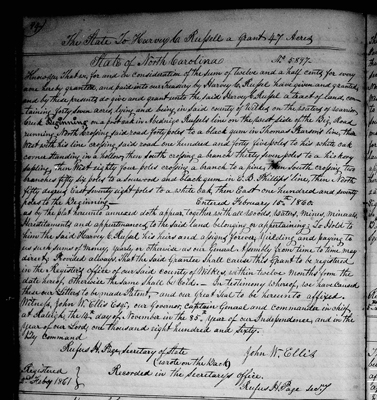 The State To Harvey C. Russell a grant 47 Acres
State of North Carolina No 5847.
Know ye, That we, for and in consideration of the sum of twelve and a half cents for every
acre hereby granted, and paid into our Treasury by Harvey C. Russel have given and granted,
and by these presents do give and grant unto the said Harvey C. Russel a tract of land, con-
taining forty seven acres, lying and being in said county of Wilkes on the waters of warrior
creek Beginning on a post oak in Hedwigs Russels line on the west side of the Big Road
running North crossing said road forty poles to a black gum in Thomas line, then
West with his line crossing said road, one hundred and forty five poles to his white oak
corner standing in a hollow, then South crossing a branch thirty four poles to a hickory
sapling, Then West eighty four poles crossing a branch to a pine, Then South crossing two
branches fifty six poles to a sourwood and black gum in E. B. Phillips line, then North
fifty degrees East seventy eight poles to a white oak then East one hundred and seventy
poles to the Beginning— Entered February 15th 1860.
as by the plat hereunto annexed doth appear, Together with all woods, waters, mines, minerals
Hereditaments and appurtenances, to the said land belonging or appertaining: To Hold to
him the said Harvey C. Russel his heirs and assigns forever, Yielding and paying to
us such sums of money, yearly, or otherwise as our General Assembly from time to time may
direct, Provided always That the said Grantee Shall cause this Grant to be registered
in the Registers office of our said County of Wilkes within twelve months from the
date hereof, otherwise the same shall be void.— In testimony whereof, we have caused
these our Letters to be made Patent, and our great Seal to be hereunto affixed
Witness, John W. Ellis Esqr, our Governor, Captain General and commander in chief,
at Raleigh, the day of November in the 85th year of our Independence, and in the
year of our Lord one thousand eight hundred and Sixty.
By Command
Rufus H. Page, secretary of State John W. Ellis
(wrote on the Back)
Registered Recorded in the Secretarys office.
Feby 1861 Rufus H. Page secty